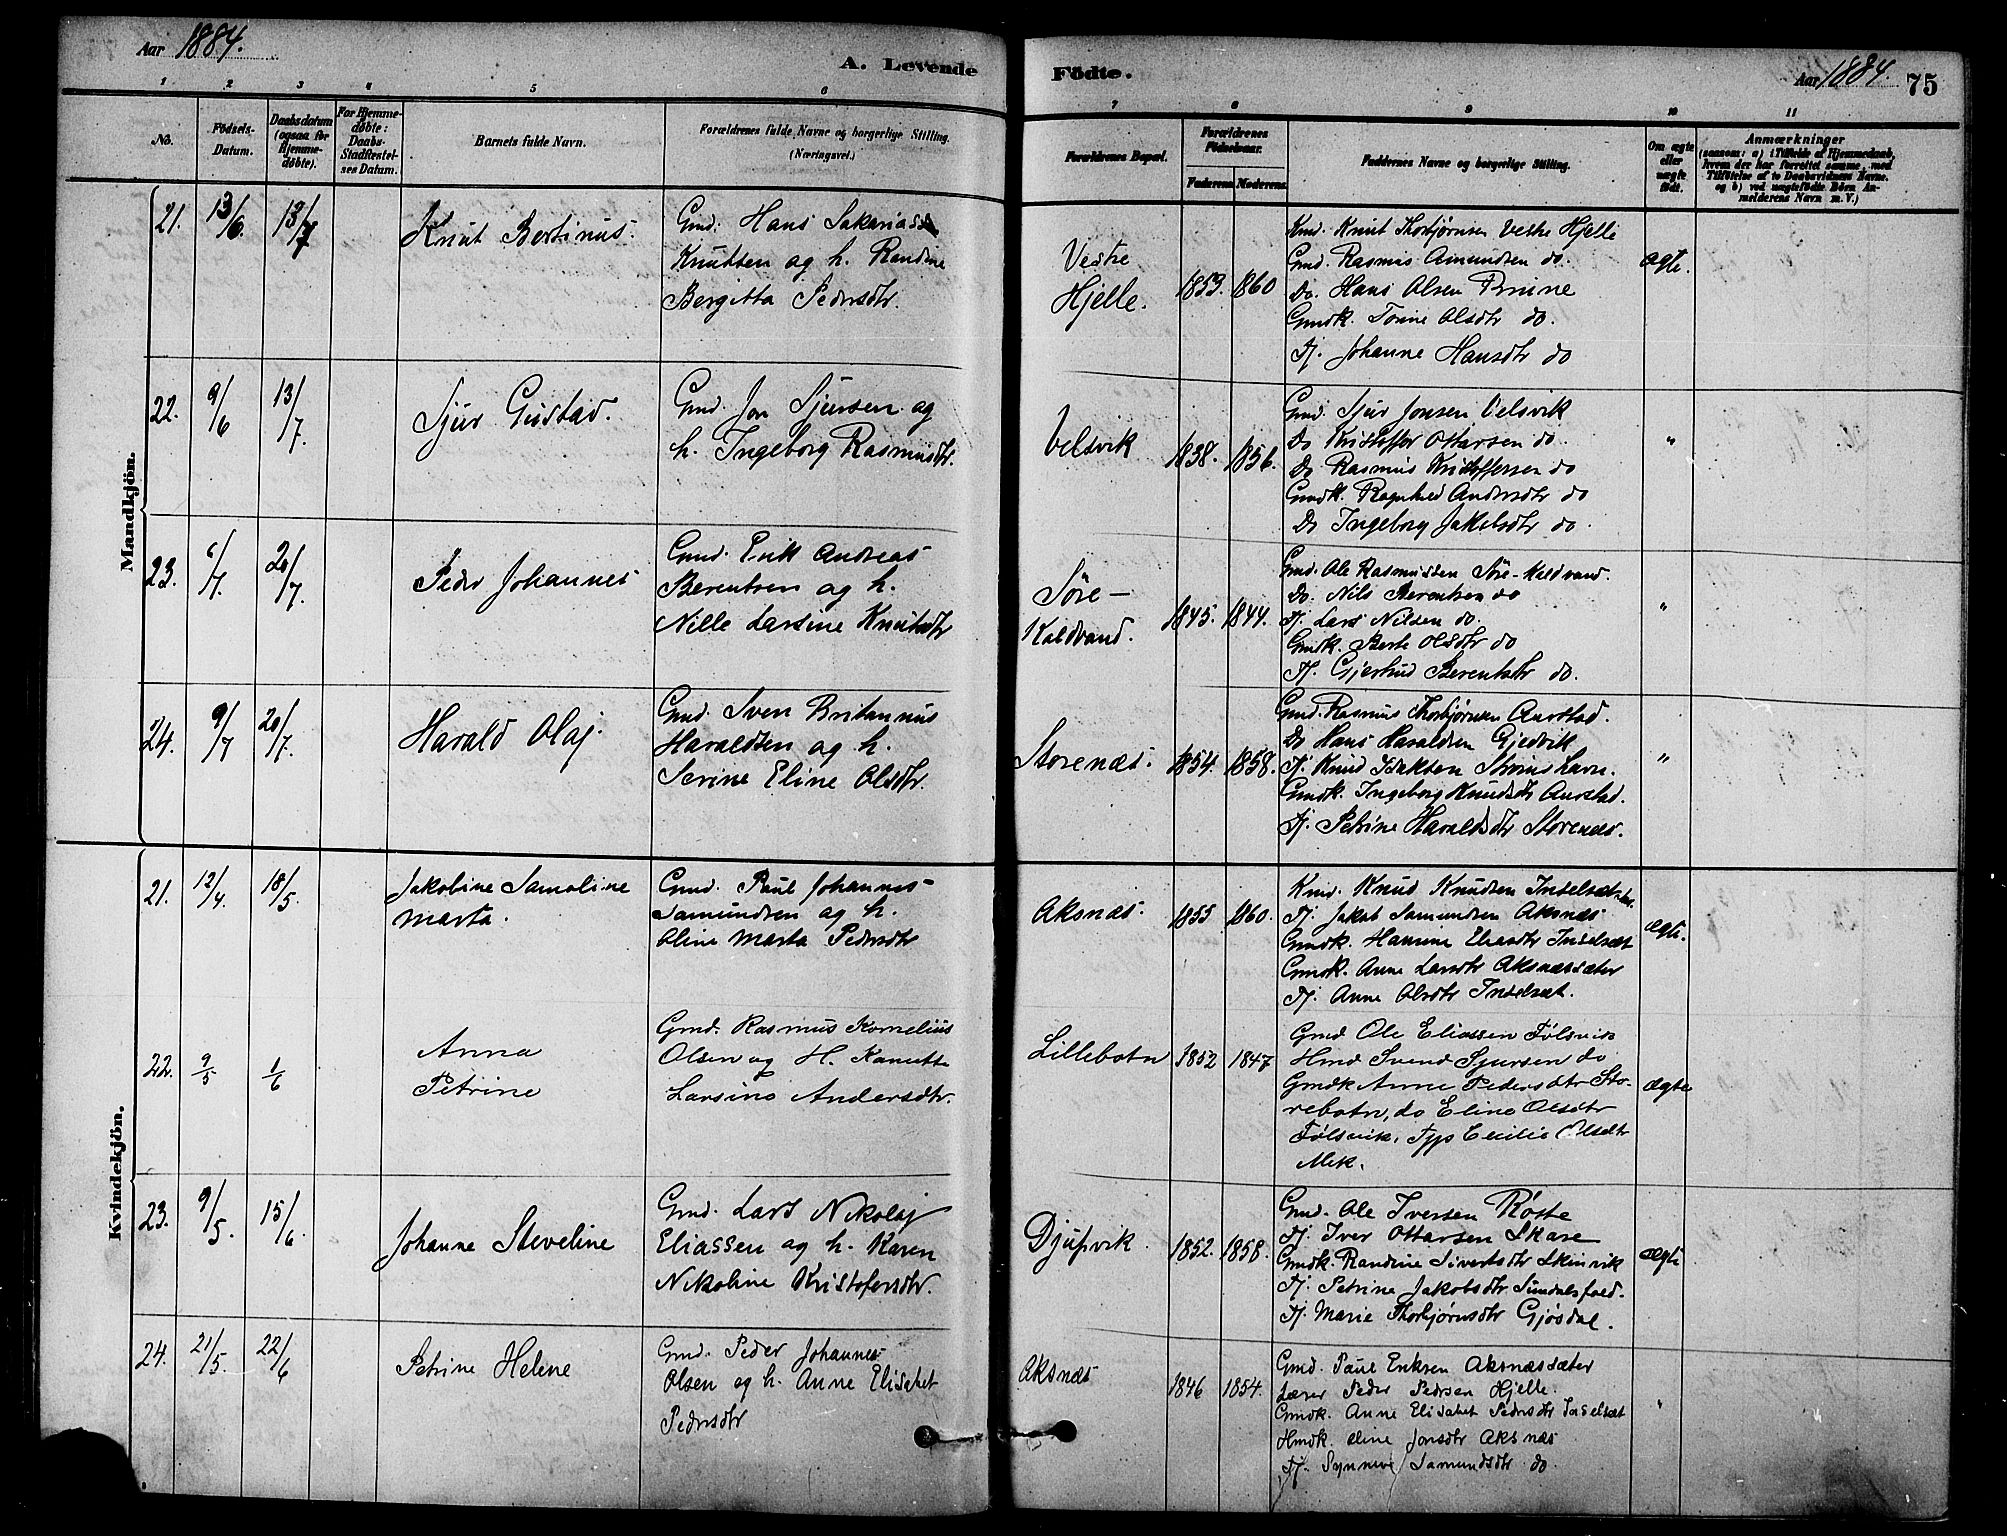 Aar 1884.
A. Levende
Fødte.
Aar 1884.
75
1 2 3 4 5 6
7 8 9 10 11
No.
Fødsels-
Datum.
Daabsdatum
(ogsaa for
Hjemme-
døbte).
For Hjemme-
døbte:
Daabs-
Stadfæstel-
ses Datum.
Barnets fulde Navn.
Forældrenes fulde Navne og borgerlige Stilling.
(Næringsvei.)
Forældrenes Bopæl.
Forældrenes
Fødselsaar.
Faderens Moderens
Faddernes Navne og borgerlige Stilling.
Om ægte
eller
uægte
født.
Anmærkninger
(saasom: a) i Tilfælde af Hjemmedaab,
hvem der har forrettet samme, med
Tilføielse af to Daabsvidners Navne.
og b) ved uægtefødte Børn An-
melderens Navn m. V.)
Mandkjön.
21.
13/6.
13/7
Knut Bertinus.
Gmd. Hans Sakarias
Knutsen og h. Randine
Bergitta Pedersdtr.
Vestre
Hjelle.
1853. 1860
Kmd. Knut Thorbjørnsen Vestre Hjelle
Gmd. Rasmus Amundsen do.
Do. Hans Olsen Brune
Gmdk. Tomine Olsdtr do.
Tj. Johanne Hansdtr do
ægte.
22.
9/6
13/7.
Sjur Gustad.
Gmd. Jon Sjursen og
h. Ingeborg Rasmusdtr.
Velsvik
1838. 1856.
Gmd. Sjur Jonsen Velsvik
Do Kristoffer Ottarsen do.
Do Rasmus Kristoffersen do
Gmdk. Ragnhild Andersdtr do
Do Ingeborg Jakobsdtr do.
"
23.
6/7.
20/7.
Peder Johannes
Gmd. Erik Andreas
Berentsen og h.
Nille Larsine Knutsdtr
Søre-
Kaldvand.
1845. 1844.
Gmd. Ole Rasmussen Søre-Kaldvand.
Do. Nils Berentsen do
Tj. Lars Nilsen do.
Gmdk. Berte Olsdtr do
Tj. Gjertrud Berentsdtr do.
"
24.
9/7
20/7.
Harald Olaj.
Gmd. Sven Britannus
Haraldsen og h.
Serine Eline Olsdtr.
Storenæs.
1854. 1858.
Gmd. Rasmus Thorbjørnsen Aarstad.
Do Hans Haraldsen Gjedvik
Tj. Knud Isaksen
Gmdk. Ingeborg Knudsdtr Aarstad.
Tj. Petrine Haraldsdtr Storenæs.
"
Kvindekjön.
21.
12/4
18/5.
Jakobine Samoline
Marta.
Gmd. Paul Johannes
Samundsen og h.
Oline Marta Pedersdtr
Aksnæs.
1855 1860.
Kmd. Knud Knudsen Inselsæt
Tj. Jakob Samundsen Aksnæs
Gmdk. Hansine Eliasdtr Inselsæt
Gmdk. Anne Larsdtr Aksnæssæter
Tj. Anne Olsdtr Inselsæt.
ægte.
22.
9/5
1/6
Anna
Petrine
Gmd. Rasmus Kornelius
Olsen og H. Kanutte
Larsine Andersdtr.
Lillebotn
1852 1847
Gmd Ole Eliassen Følsvik
Hmd Svend Sjursen do
Gmdk Anne Pedersdtr Sto-
rebotn, do Eline Olsdtr
Følsvik, Typ Ecilie Olsdtr
Mek.
ægte
23.
9/5.
15/6.
Johanne Steveline
Gmd. Lars Nikolaj
Eliassen og h. Karen
Nikoline Kristofersdtr.
Djupvik.
1852. 1858.
Gmd. Ole Iversen Røste
Tj. Iver Ottarsen Skare
Gmdk. Randine Sivertsdtr Skinvik
Tj. Petrine Jakobsdtr
Tj. Marie Thorbjørnsdtr Gjøsdal.
ægte
24.
21/5.
22/6
Petrine Helene
Gmd. Peder Johannes
Olsen og h. Anne Elisabet
Pedersdtr
Aksnæs
1846 1854.
Gmd. Paul Eriksen Aksnæssæter
Lærer Peder Pedersen Hjelle.
Gmdk. Anne Elisabet Pedersdtr Inselsæt
Hmdk. Oline Jonsdtr Aksnæs
Tj. Synneve Samundsdtr do.
"